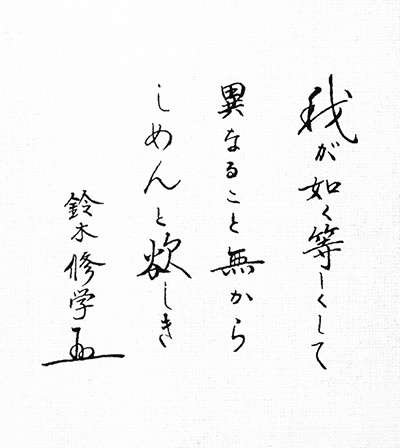 我が如く等しくして
異なること無から
しめんと欲しき
鈴木修学